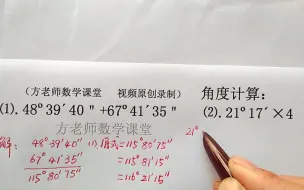 （方老师数学课堂　视频原创录制）　角度计算：
(1).48°39′40″+67°41′35″　(2).21°17′×4
方老师数学课堂
解：　48°39′40″　(1).原式=115°80′75″　21°
67°41′35″　=115°81′15″
115°80′75″　=116°21′15″